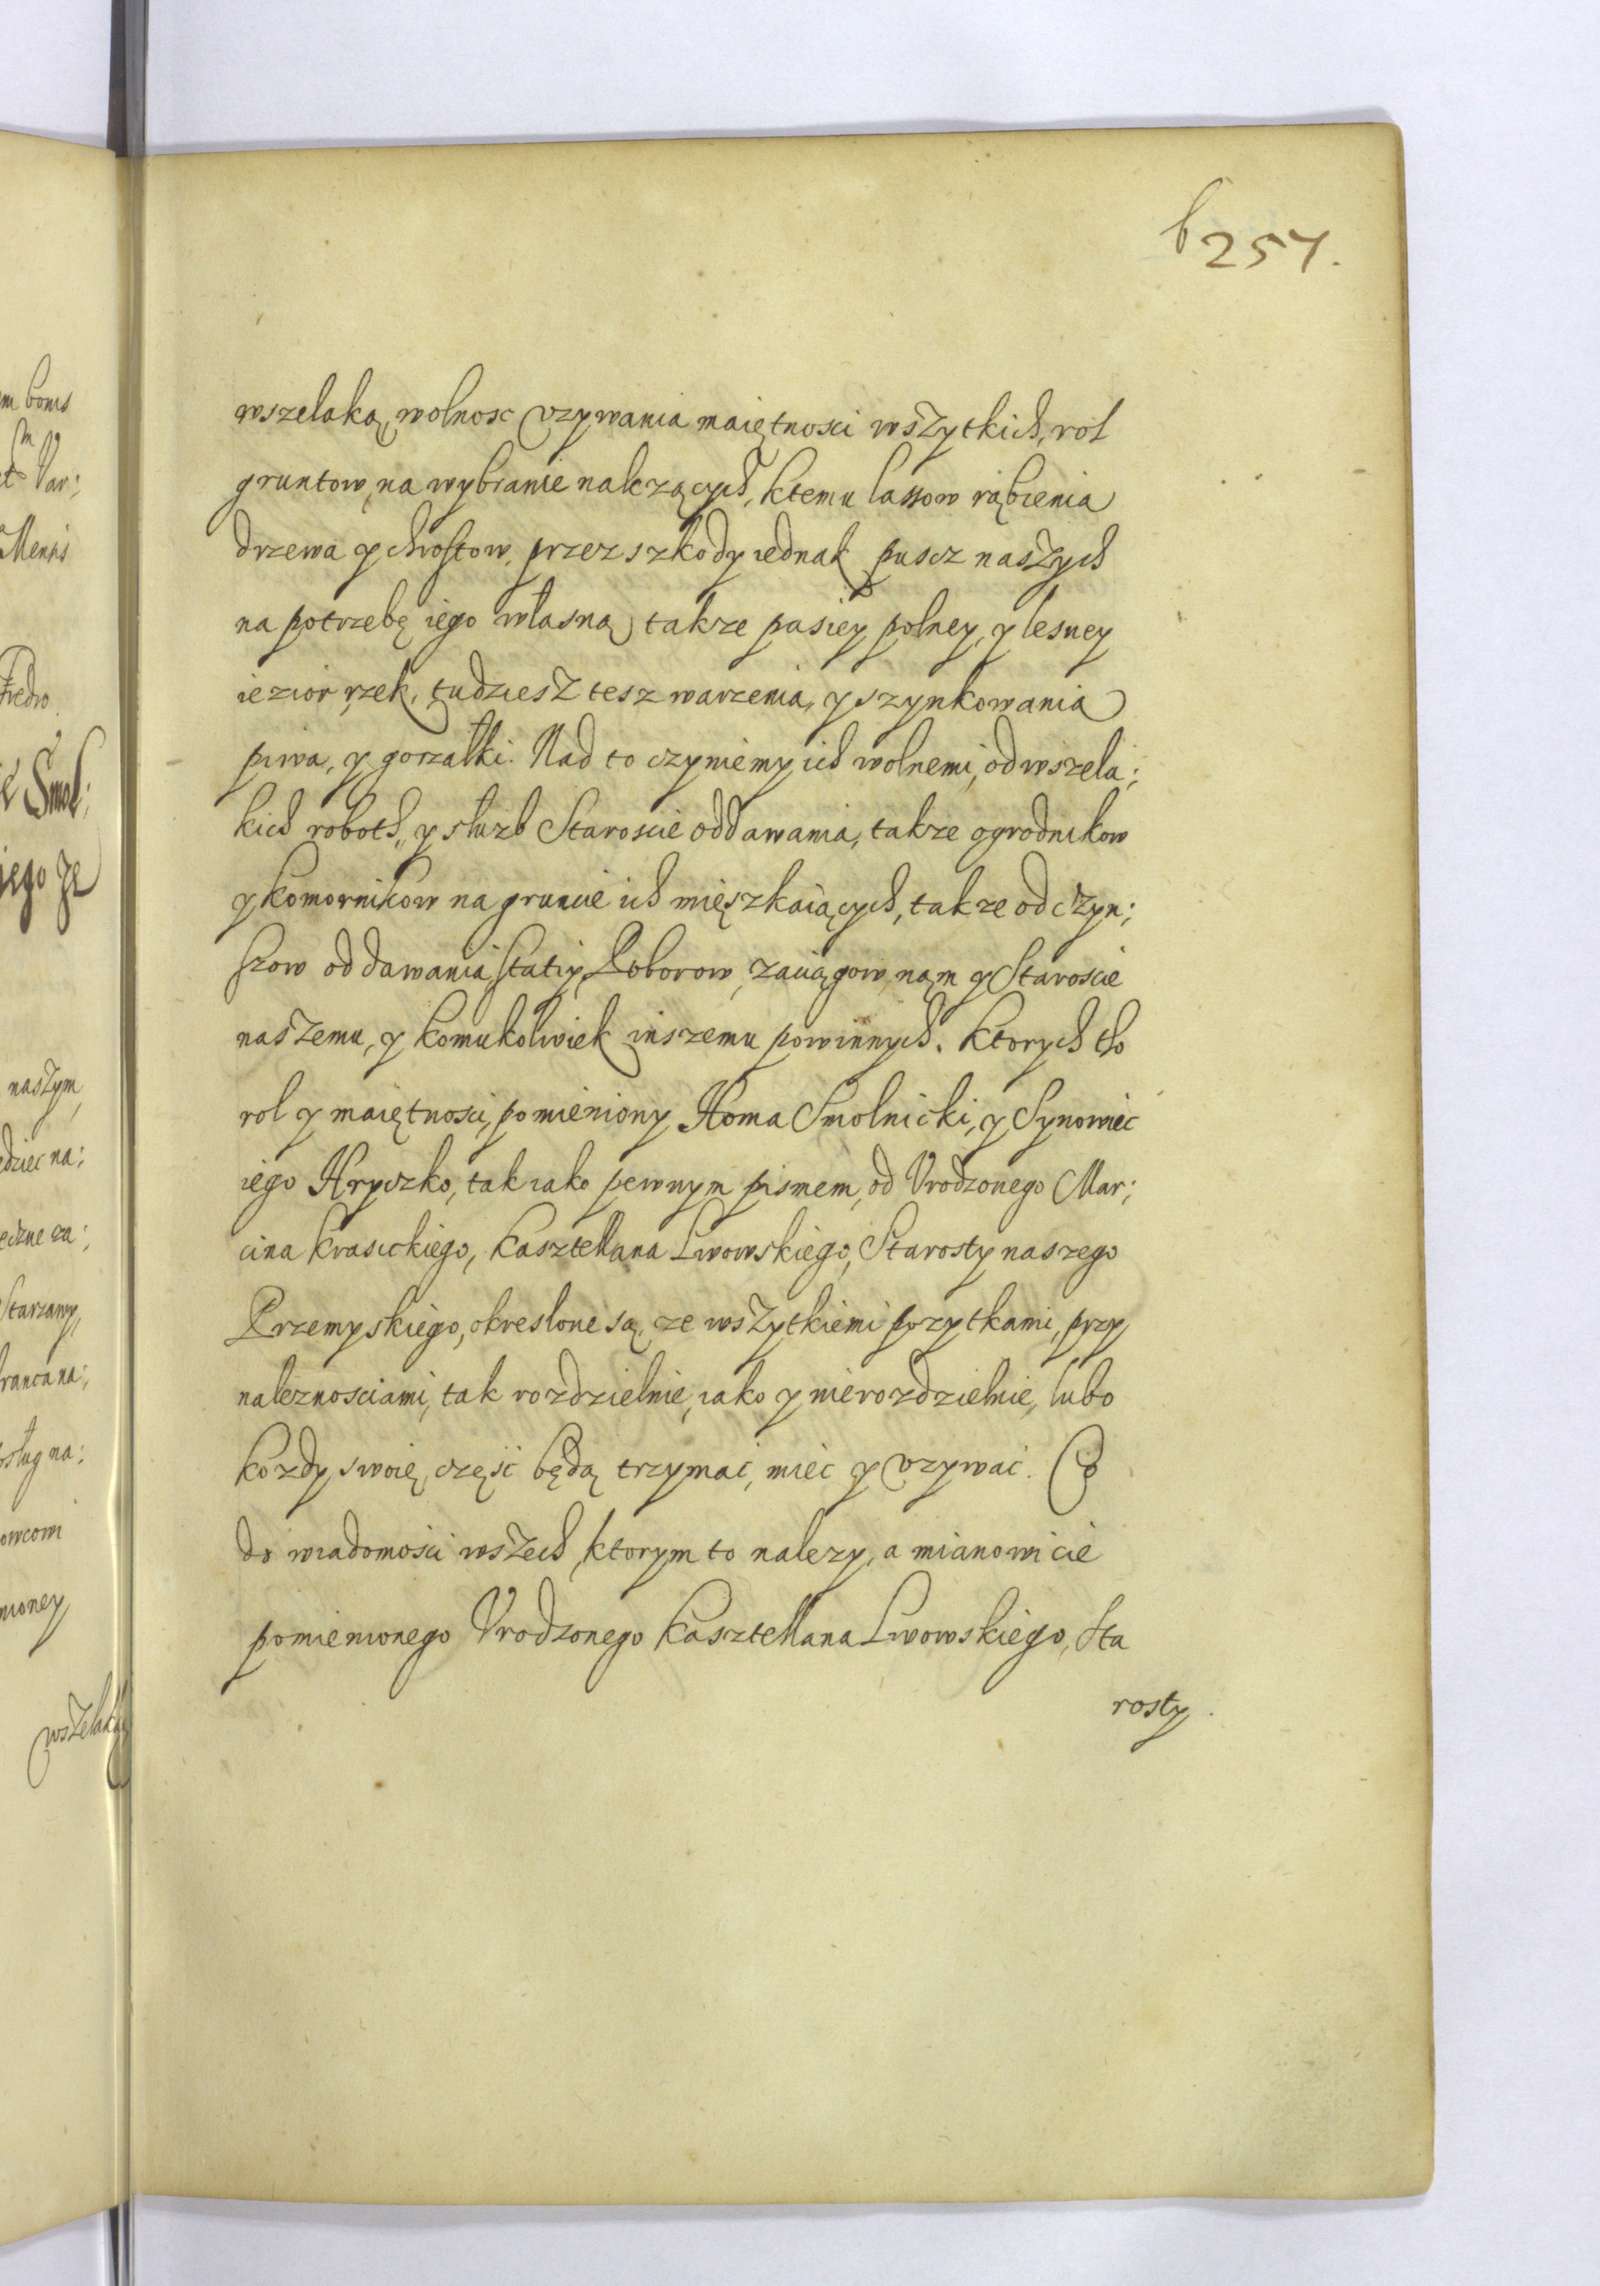 b 257.
wszelaką wolnosc vzywania maiętnosci wszytkich, rol
gruntow, na wybranie nalezących, ktemu lassow rąbienia
drzewa y chrostow, przez szkody iednak puscz naszych
na potrzebę iego własną takze pasiey polney, y lesney
iezior rzek, tudziesz tesz warzenia, y szynkowania
piwa, y gorzałki. Nad to czyniemy ich wolnemi, od wszela:
kich roboth, y słuzb Staroscie oddawania, takze ogrodnikow
y komornikow na gruncie ich mięszkaiących, takze od czyn:
szow oddawania, Statiy Poborow, zaciągow nąm y Staroscie
naszemu, y komukolwiek inszemu powinnych. Ktorych tho
rol y maiętnosci, pomieniony Homa Smolnicki, y Synowiec
iego Hryczko, tak iako pewnym pismem, od Vrodzonego Mar:
cina Krasickiego, Kasztellana Lwowskiego, Starosty naszego
Przemyskiego, okreslone są, ze wszytkiemi pozytkami, przy
naleznosciami, tak rozdzielnie, iako y nierozdzielnie, lubo
kozdy swoię część będą trzymać, mieć y vzywać. Co
do wiadomości wszech, ktorym to nalezy, a mianowicie
pomienionego Vrodzonego Kasztellana Lwowskiego, Sta
rosty.
em bonis
et Var:
Mensis
Fredro
ie Smol:
iego ze
naszym
edziec na:
eczne za:
Starzamy
hranca na:
osług na:
owcowi
nioney
wszelaką